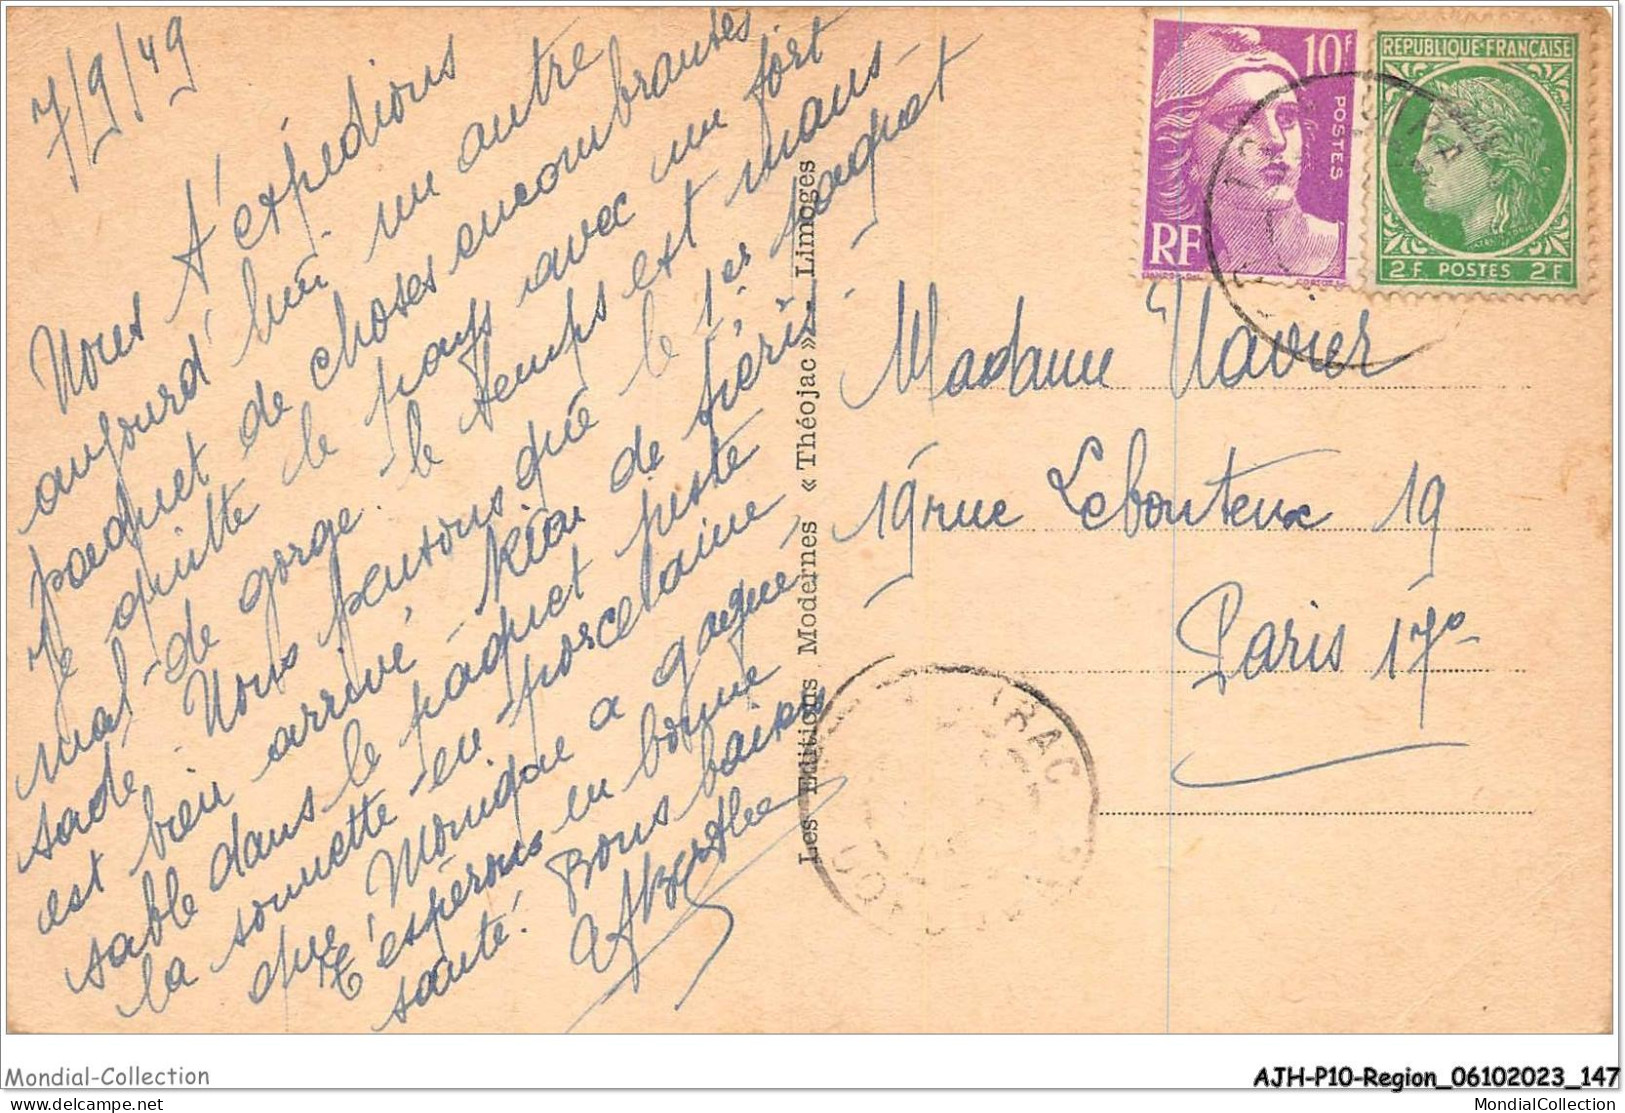 7/9/49
Nous t'expédions
aujourd'hui un autre
paquet de choses encombrantes
Je quitte le pays avec un fort
mal de gorge. le temps est maus-
sade. Nous pensons que le 1er paquet
est bien arrivé - Rien de
sable dans le paquet juste
la sonnette en porcelaine
que Monique a gagné -
T'espérons en bonne
santé! Bons baisers
Berthe
Madame Navier
19 rue Lebouteux 19
Paris 17e
10F
POSTES
RF
REPUBLIQUE FRANÇAISE
2F POSTES 2F
Les Editions Modernes « Théojac », Limoges
Mondial-Collection
AJH-P10-Region_06102023_147
MondialCollection
MondialCollection